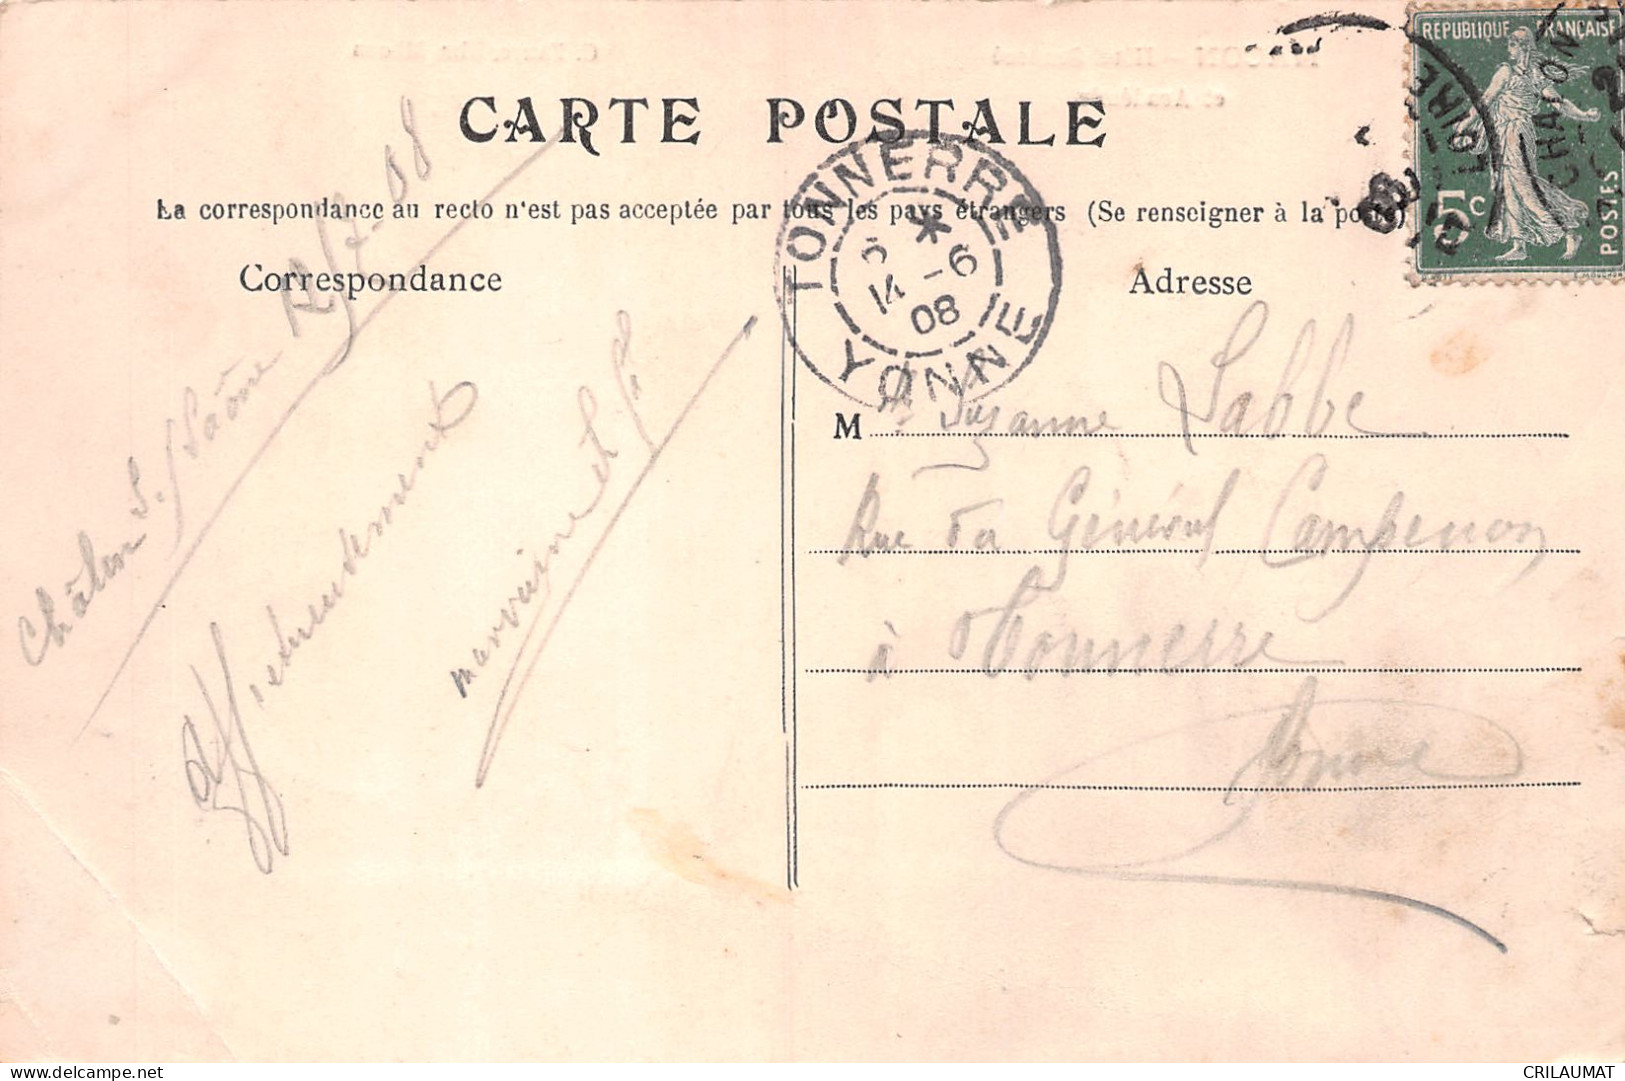 CARTE POSTALE
La correspondance au recto n'est pas acceptée par tous les pays étrangers (Se renseigner à la poste)
Correspondance
Adresse
REPUBLIQUE FRANÇAISE
5c
POSTES
CHALON
LOIRE
TONNERRE
14 -6
08
YONNE
Châlon S./Saône
Affectueusement
M Suzanne Labbe
Rue du Général Campenon
à Tonnerre
Yonne
CRILAUMAT